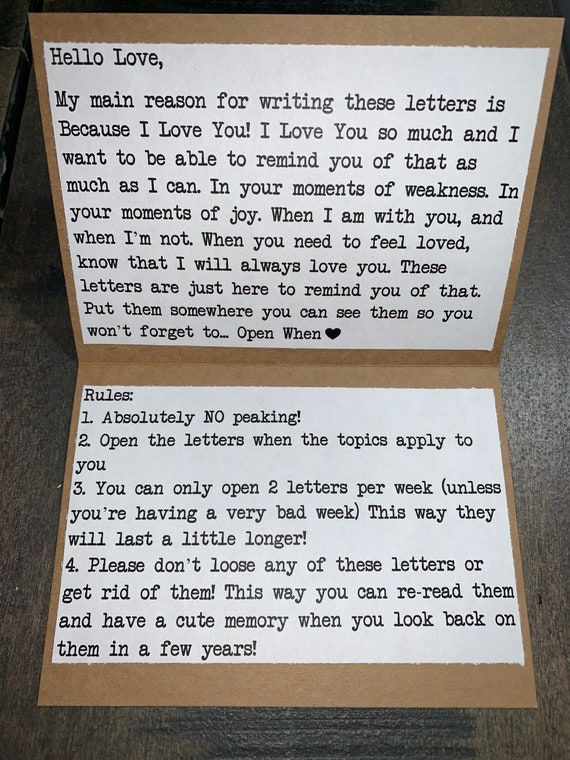 Hello Love,
My main reason for writing these letters is
Because I Love You! I Love You so much and I
want to be able to remind you of that as
much as I can. In your moments of weakness. In
your moments of joy. When I am with you, and
when I'm not. When you need to feel loved,
know that I will always love you. These
letters are just here to remind you of that.
Put them somewhere you can see them so you
won't forget to… Open When♥
Rules:
1. Absolutely NO peaking!
2. Open the letters when the topics apply to
you
3. You can only open 2 letters per week (unless
you're having a very bad week) This way they
will last a little longer!
4. Please don't loose any of these letters or
get rid of them! This way you can re-read them
and have a cute memory when you look back on
them in a few years!